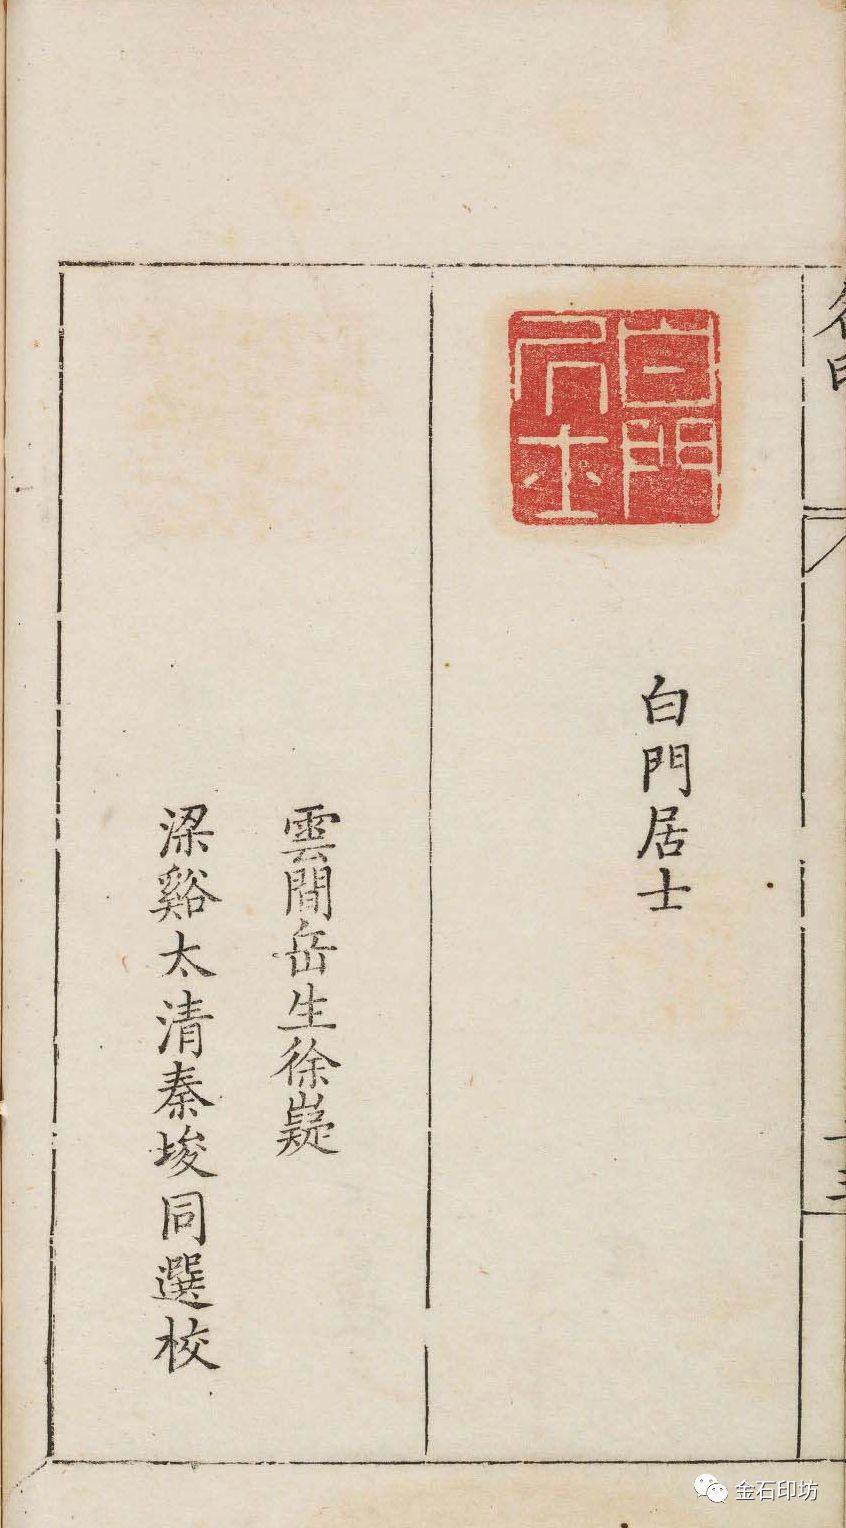 白門居士
白門居士
雲間岳生徐嶷
梁谿太清秦埈同選校
金石印坊